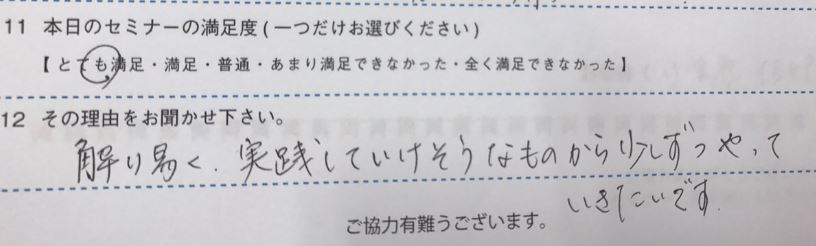 11 本日のセミナーの満足度(一つだけお選びください)
【とても満足・満足・普通・あまり満足できなかった・全く満足できなかった】
12 その理由をお聞かせ下さい。
解り易く、実践していけそうなものから少しずつやって
いきたいです。
ご協力有難うございます。